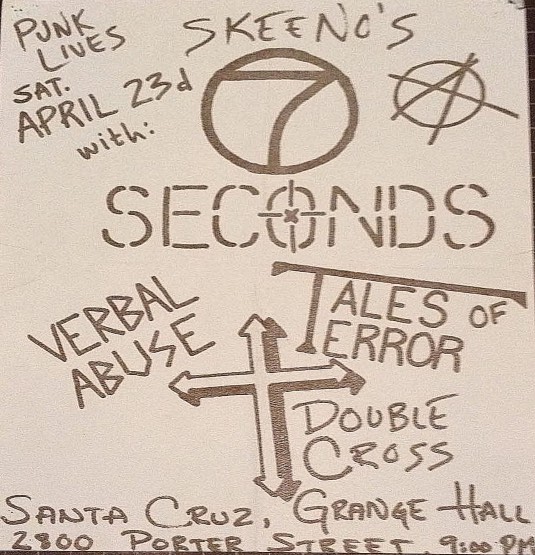 PUNK
LIVES
SKEENO'S
SAT.
APRIL 23d
with:
7
SECONDS
VERBAL
ABUSE
TALES OF
TERROR
DOUBLE
CROSS
SANTA CRUZ, GRANGE HALL
2800 PORTER STREET 9:00 PM